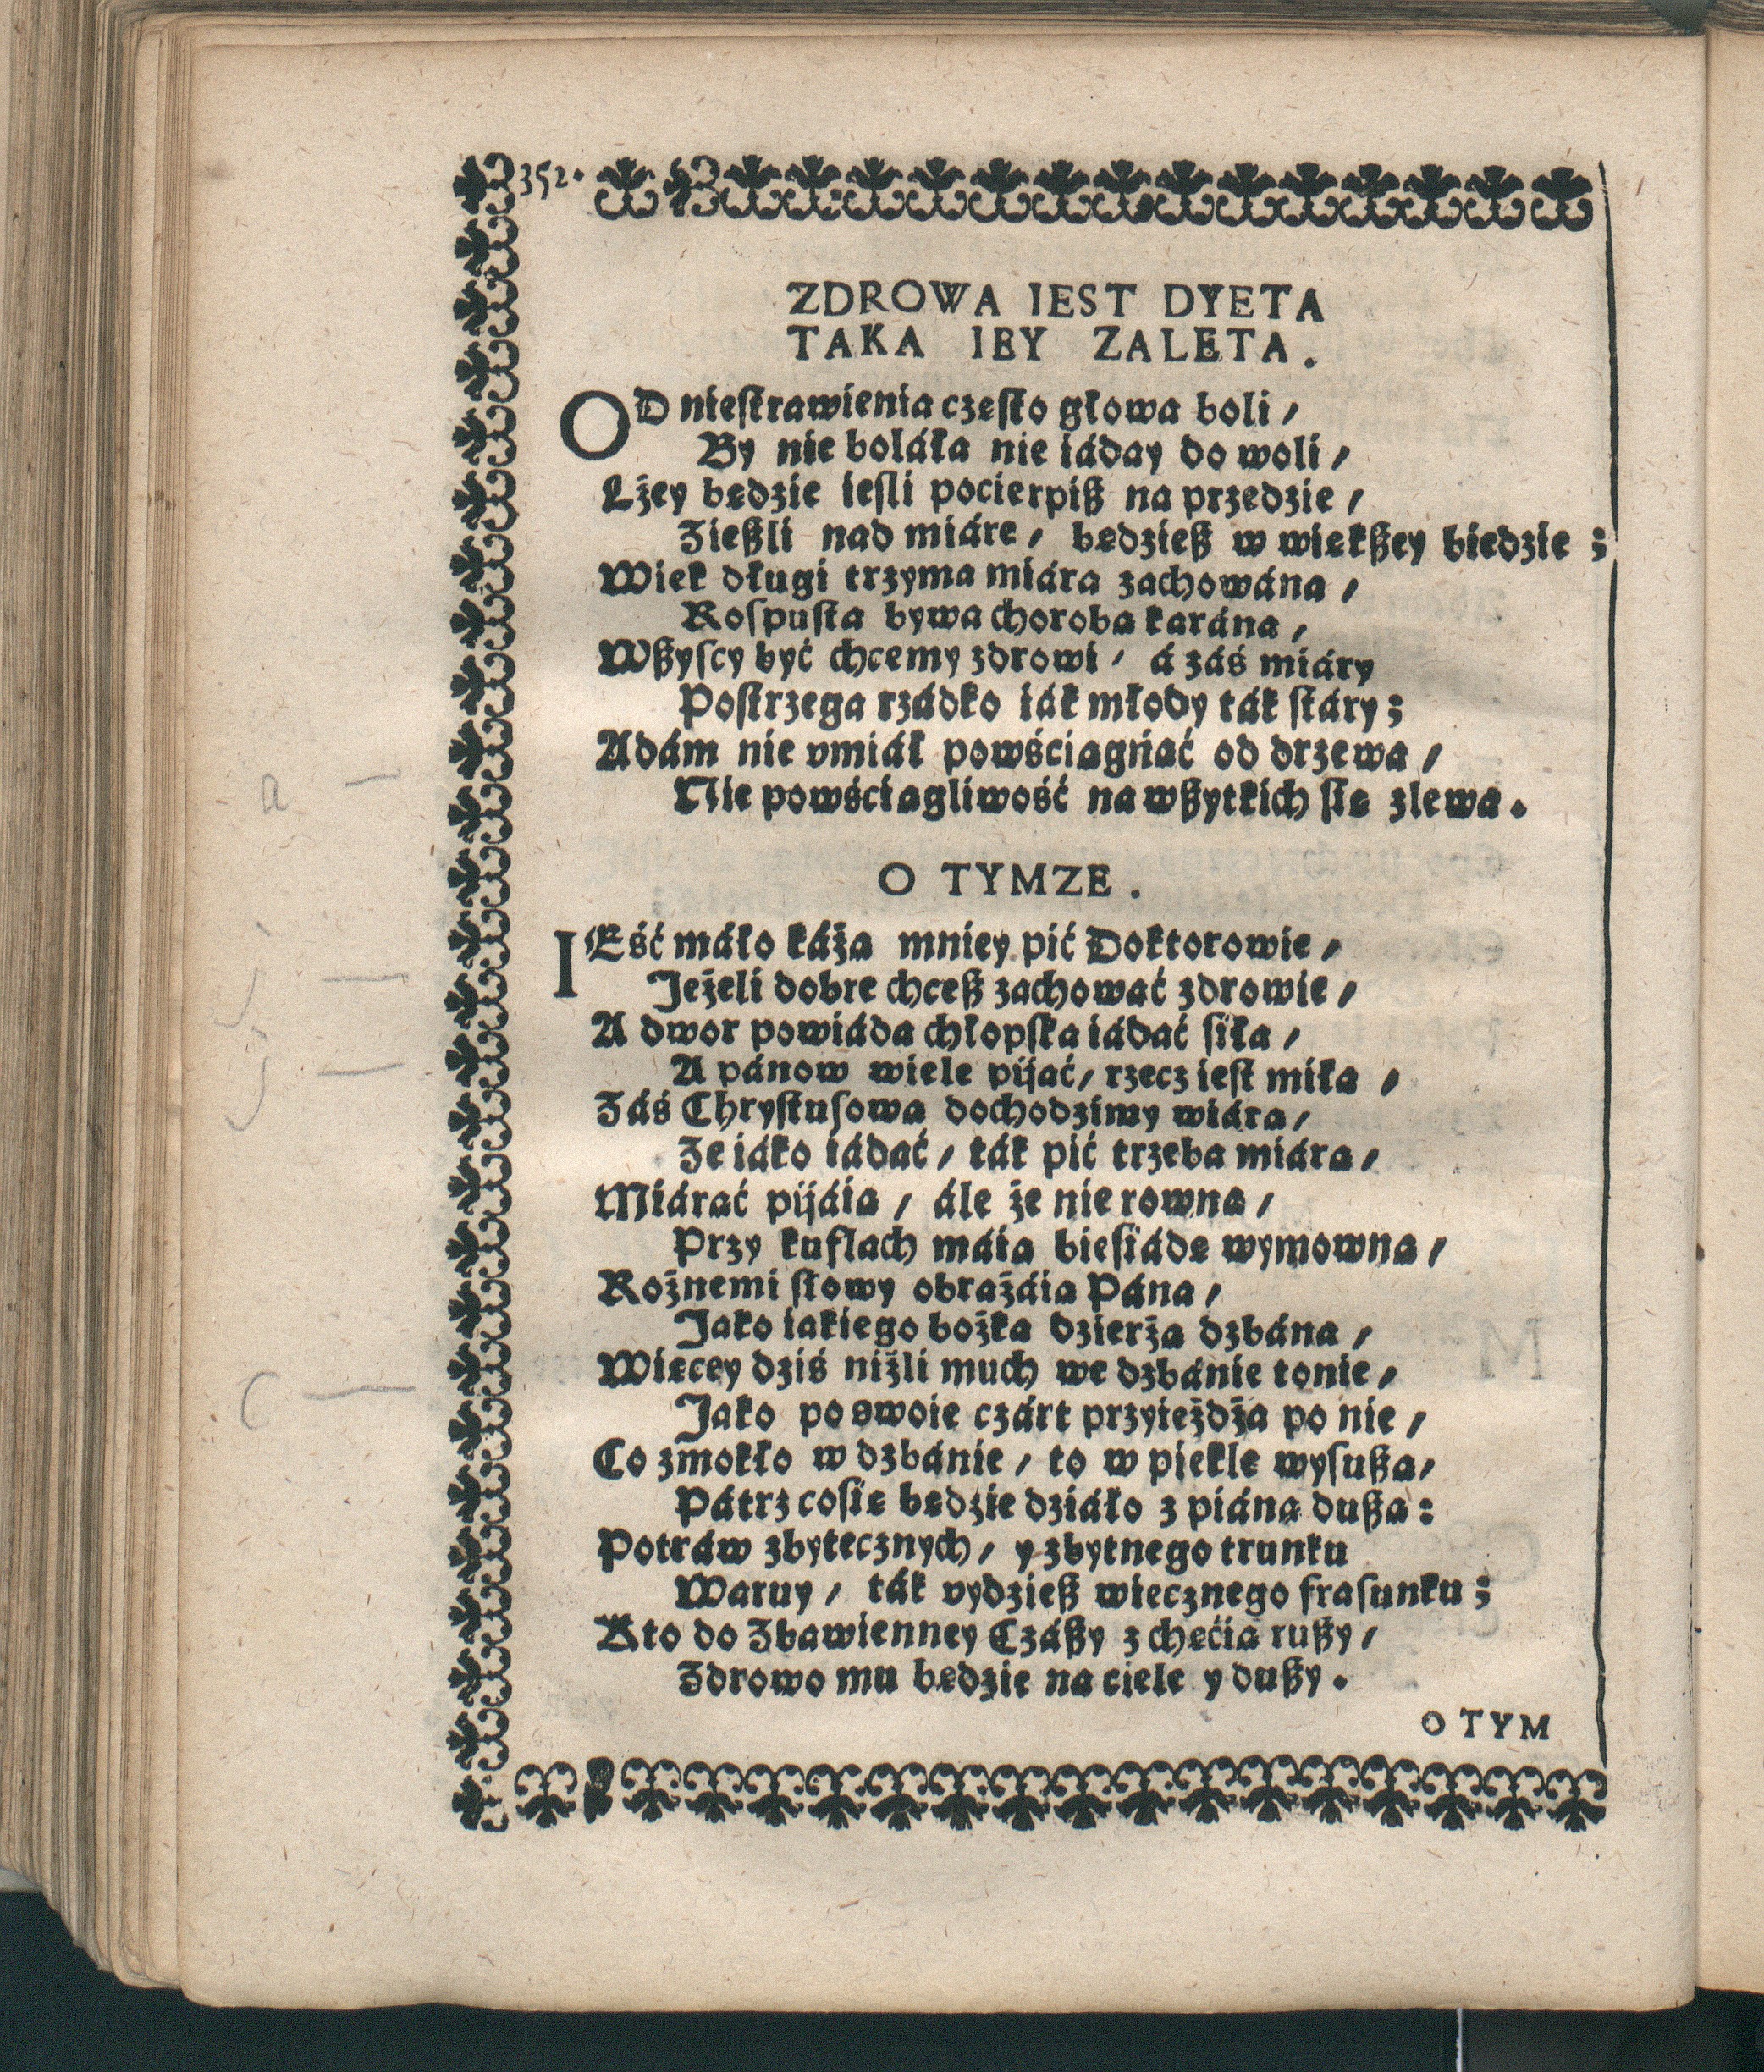 352.
ZDROWA IEST DYETA
TAKA IEY ZALETA.
OD niestrawienia często głowa boli,
By nie boláła nie iáday do woli,
Lżey będzie iesli pocierpisz na przedzie,
Zieszli nad miárę, będziesz w większey biedzie;
Wiek długi trzyma miára záchowána,
Rospusta bywa chorobą karána,
Wszyscy być chcemy zdrowi, á záś miáry
Postrzega rzádko iák młody ták stáry;
Adám nie vmiáł powściągnąć od drzewa,
Nie powściągliwość na wszytkich się zlewa.
O TYMZE.
IEść máło káżą mniey pić Doktorowie,
Jeżeli dobre chcesz zachować zdrowie,
A dwor powiáda chłopska iádać siła,
A pánow wiele pijać, rzecz iest miła,
Záś Chrystusową dochodzimy wiárą,
Ze iáko iádać, ták pić trzeba miárą,
Miárąć pijáią, ále że nie rowną,
Przy kuflach máią biesiádę wymowną,
Rożnemi słowy obrażáią Páná,
Jako iakiego bożka dzierżą dzbáná,
Więcey dziś niżli much we dzbánie tonie,
Jako po swoie czárt przyieżdża po nie,
Co zmokło w dzbánie, to w piekle wysusza,
Pátrz co się będzie działo z piáną duszą:
Potraw zbytecznych, y zbytnego trunku
Waruy, ták vydziesz wiecznego frasunku;
Kto do Zbawienney Czászy z chęcią ruszy,
Zdrowo mu będzie na ciele y duszy.
O TYM
a
j
j
c